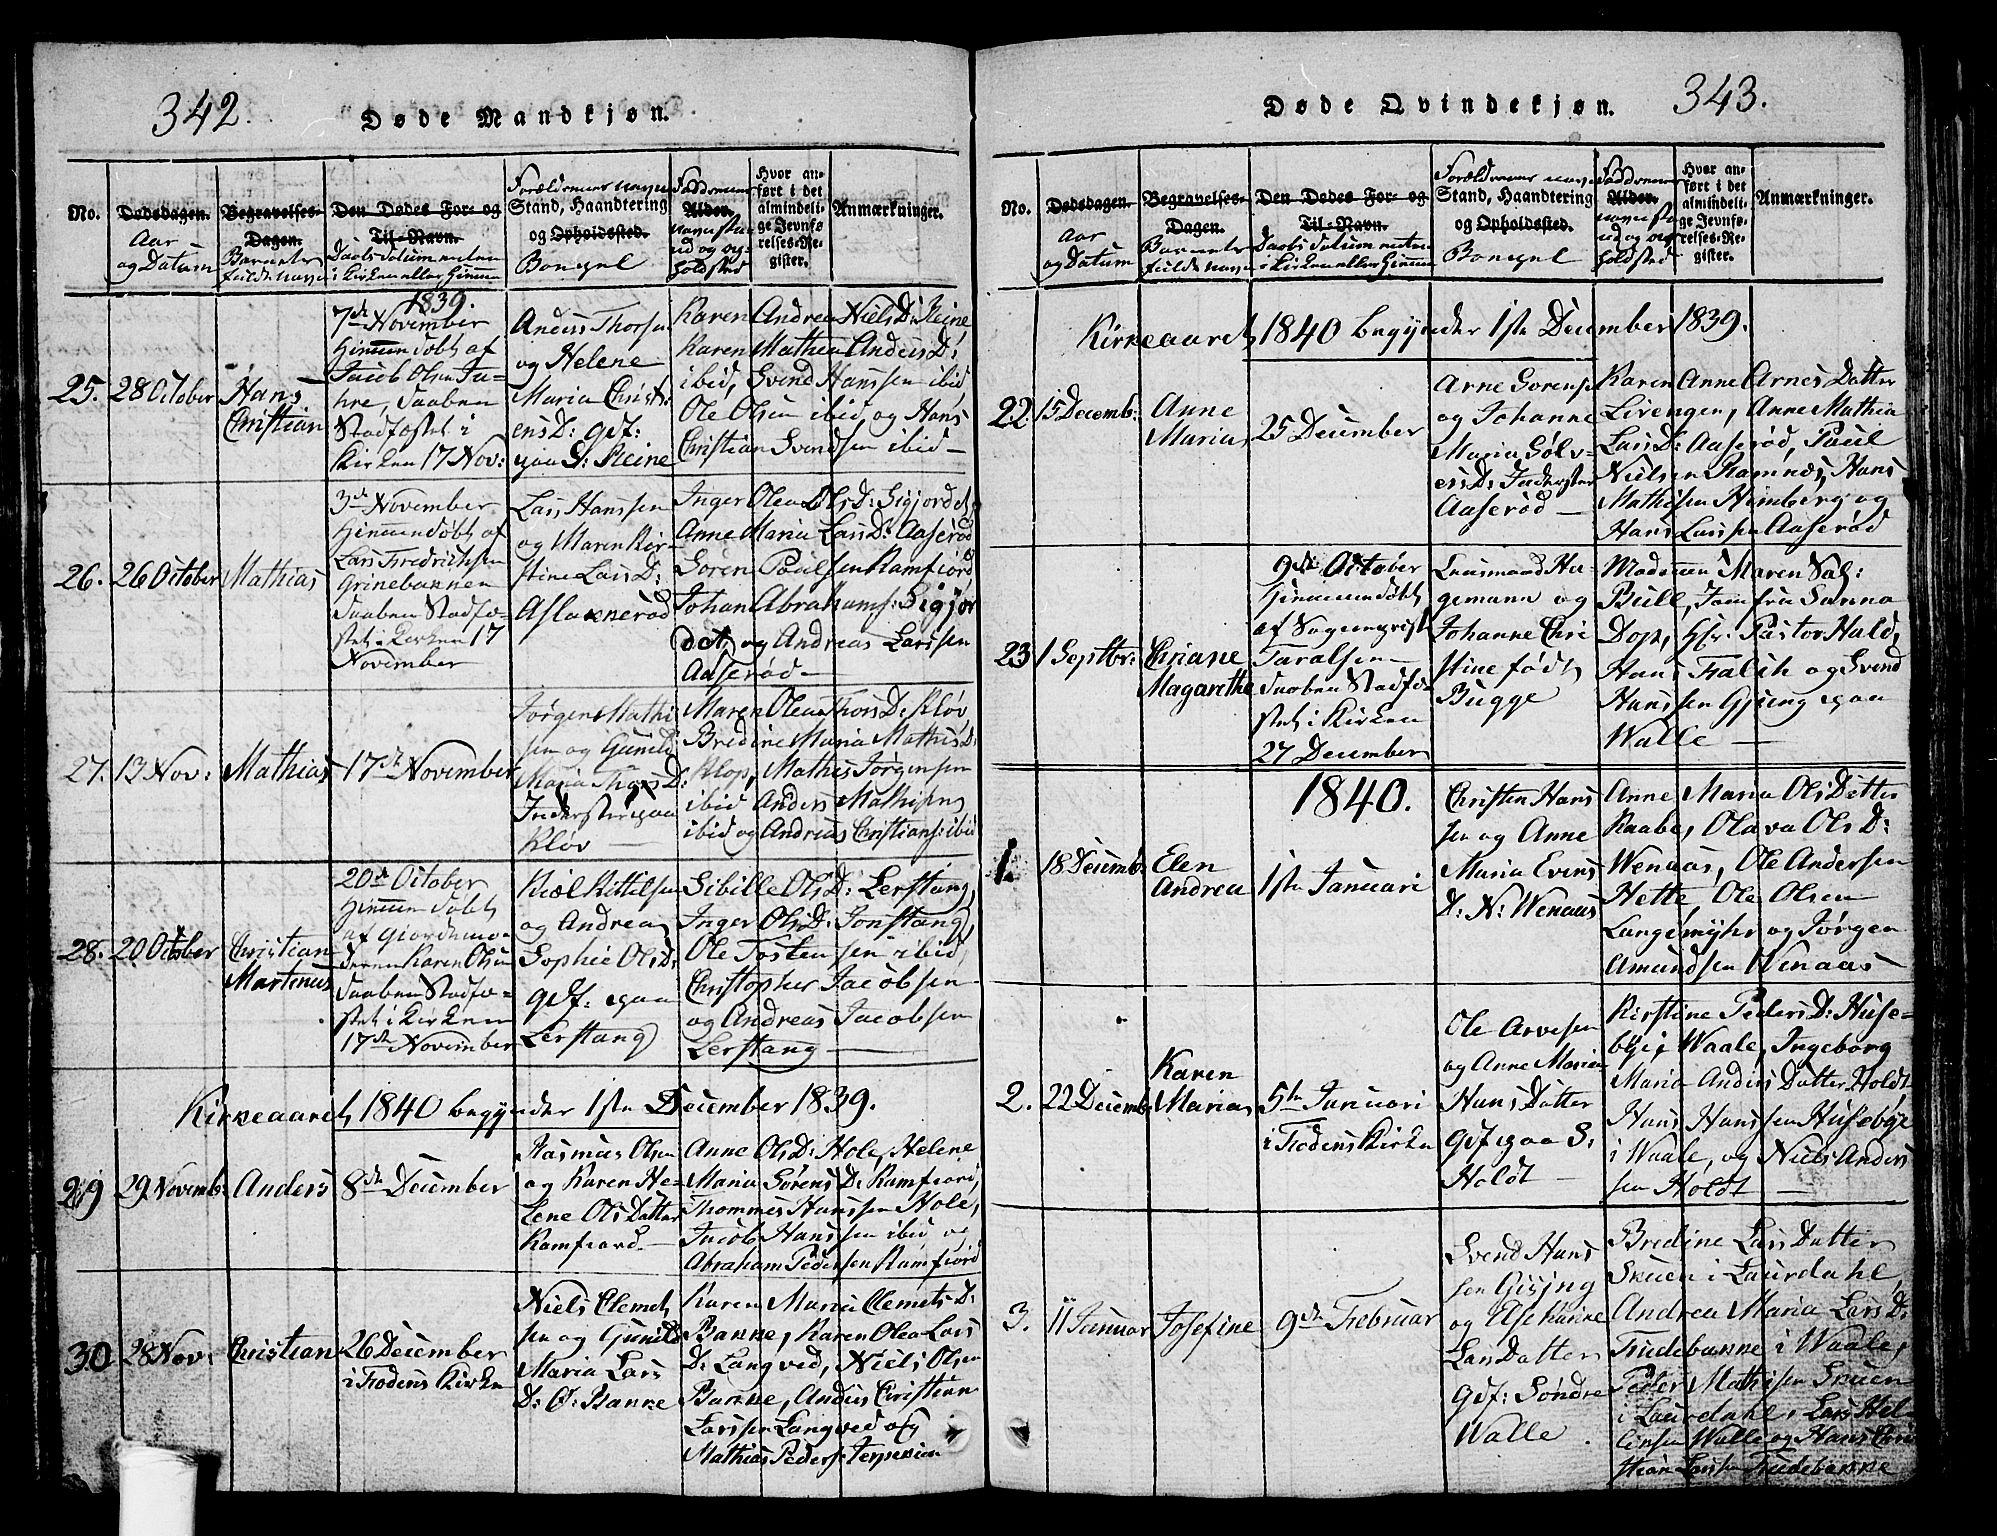 342.
Døde Mandkjøn.
No.
Dødsdagen.
Aar
og Datum
Begravelses-
Dagen.
Barnets
fulde navn
Den Dødes For- og
Til-Navn.
Daabs Datum enten
i Kirken eller Hjemme
Forældrenes navn
Stand, Haandtering
og Opholdssted.
Bopæl
Faddernes
Alder.
navn sta
nd og op
holdsted
Hvor an-
ført i det
almindeli-
ge Jevnfø-
relses-Re-
gister.
Anmærkninger.
25.
28 October
Hans
Christian
1839.
7de November
Hjemmedøbt af
Jacob Olsen
Daaben
Stadfæstet i
Kirken 17 Nov:
Anders Thorsen
og Helene
Maria Christ:
ensD: gdf:
paa S: Reine
Karen Andrea Niels D: Reine
Karen Mathea Anders D:
ibid, Svend Hanssen ibid
Ole Olsen ibid og Hans
Christian Svendsen ibid
26.
26 October
Mathias
3de November
Hjemmedøbt af
Lars Fredrichsen
Grinebakken
Daaben Stadfæ-
stet i Kirken 17
November
Lars Hanssen
og Maren Kir-
stine Lars D:
Aslakkerød
Inger Olea Ols D: Sigjordet
Anne Maria Lars D: Aaserød
Søren Poulsen Ramfjord
Johan Abrahams: Sigjor
det, og Andreas Larssen
Aaserød
27.
13 Nov:
Mathias
17de November
Jørgen Mathi
sen og Gunild
Maria Thors D:
Inderster paa
Kløv
Maren Olea Thors D: Kløv
Bredine Maria Mathis D:
Klop, Mathis Jørgensen
ibid Anders Mathisen
ibid og Andreas Christians: ibid
28.
20 October
Christian
Martinus
20de October
Hjemmedøbt
af Giordemo-
deren Karen Olsen
Daaben Stadfæ-
stet i Kirken
17de November
Kiøl Kittilsen
og Andrea
Sophie Ols D:
gdf: paa
Lerstang
Sibille Ols D: Lerstang,
Inger Ols D: Jonstang,
Ole Tostensen ibid,
Christopher Jacobsen
og Andreas Jacobsen
Lerstang
Kirkeaaret 1840 begynder 1ste December 1839.
29
29 Novemb:
Anders
8de December
Rasmus Olsen
og Karen He-
lene Ols Datter
Ramfjord
Anne Ols D: Hole, Helene
Maria Sørens D: Ramfiord,
Thommes Hanssen Hole,
Jacob Hanssen ibid og
Abraham Pedersen Ramfjord
30
28 Nov:
Christian
26 December
i Fodens Kirke
Niels Clemet
sen og Gunild
Maria Lars
D: Ø: Bakke
Karen Maria Clemets D:
Bakke, Karen Olea Lars
D: Langved, Niels Olsen
Bakke, Anders Christian
Larssen Langved og
Mathias Peders:
343.
Døde Qvindekjøn.
No.
Dødsdagen.
Aar
og Datum
Begravelses-
Dagen.
Barnets
fulde navn
Den Dødes For- og
Til-Navn.
Daabs Datum enten
i Kirken eller Hjemme
Forældrenes navn
Stand, Haandtering
og Opholdssted.
Bopæl
Faddernes
Alder.
navn sta
nd og op
holdsted
Hvor an-
ført i det
almindeli-
ge Jevnfø-
relses-Re-
gister.
Anmærkninger.
Kirkeaaret 1840 begynder 1ste December 1839.
22.
15 Decemb:
Anne
Maria
25 December
Arne Sorens:
og Johanne
Maria Sølv-
esD: Inderster
Aaserød
Karen Anne Arnes Datter
Lirengen, Anne Mathia
Lars D: Aaserød, Poul
Nielsen Ramnæs, Hans
Mathisen Himberg og
Hans Larssen Aaserød
23
1 Septbr:
Chriane
Magarethe
9de October
Hjemmedøbt
af
Taralsen
Daaben Stadfæ
stet i Kirken
27 December
Lensmand Ha-
gemann og
Johanne Chri
stine født
Bugge
Madamme Maren Sal:
Bull, Jomfru Sanna
Dop, Hr. Pastor Hald,
Hans Falch og Svend
Hanssen Gjsing paa
Walle
1.
18 Decemb:
Elen
Andrea
1840.
1ste Januari
Christen Hans
sen og Anne
Maria Evens
D: N: Wenaas
Anne Maria Ols Datter
Raabe, Olava Ols D:
Wenaas, Ole Andersen
Hette, Ole Olsen
Langemyhr og Jørgen
Amundsen Wenaas
2.
22 Decemb:
Karen
Maria
5te Januari
i Fodens Kirke
Ole Arvesen
og Anne Maria
Hans Datter
Gdf paa S:
Holdt
Kirstine Peders D: Huse-
bye i Waale, Ingeborg
Maria Anders Datter Holdt
Hans Hanssen Husebye
i Waale, og Niels Anders
sen Holdt
3.
11 Januar
Josefine
9de Februar
Svend Hans
sen Gisjng
og Else Karine
Lars Datter
Gdf: Søndre
Walle
Bredine Lars Datter
Skuen i Laurdahl,
Andrea Maria Lars D:
Trudebakke i Waale,
Peder Mathisen Skuen
i Laurdahl, Lars Kel-
linsen Walle og Hans Chri
stian Larssen Trudebakke